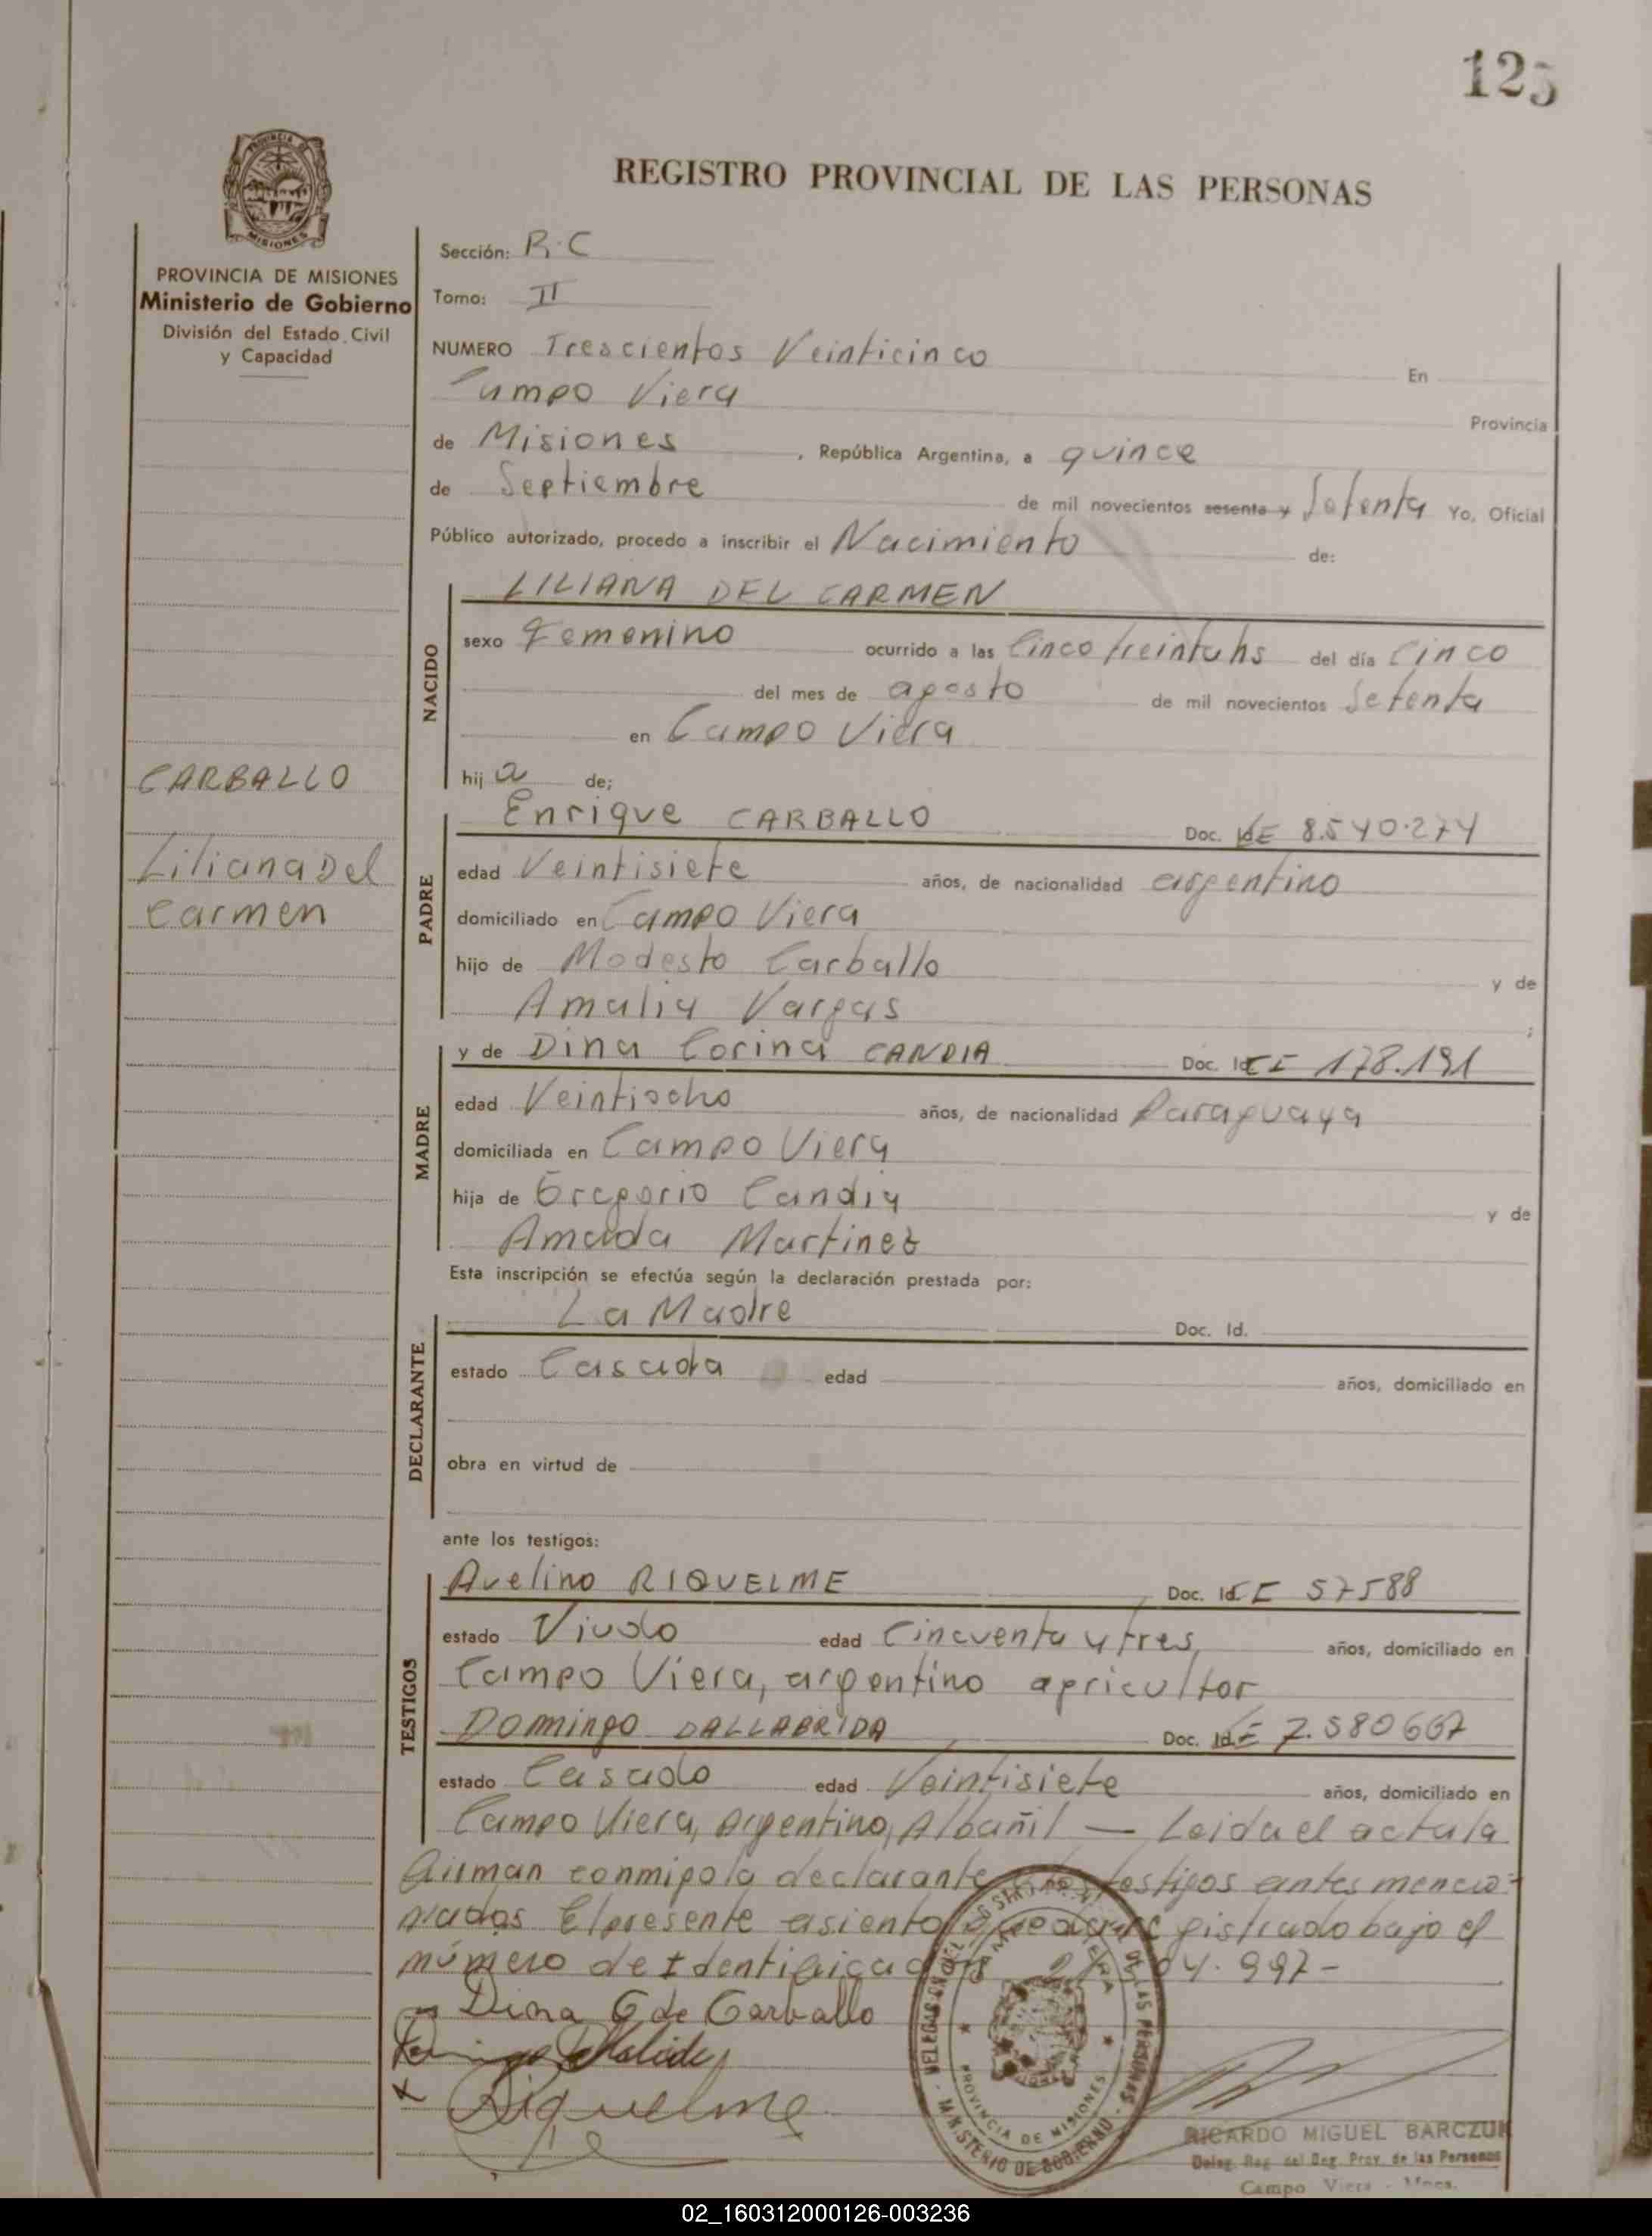 125
REGISTRO PROVINCIAL DE LAS PERSONAS
PROVINCIA DE MISIONES
Ministerio de Gobierno
División del Estado Civil
y Capacidad
CARBALLO
Liliana Del
Carmen
Sección: R.C
Tomo: II
NUMERO Trescientos Veinticinco En
Campo Viera Provincia
de Misiones, República Argentina, a quince
de Septiembre de mil novecientos sesenta y Setenta Yo, Oficial
Público autorizado, procedo a inscribir el Nacimiento de:
NACIDO
LILIANA DEL CARMEN
sexo Femenino ocurrido a las Cinco treinta hs del día Cinco
del mes de agosto de mil novecientos Setenta
en Campo Viera
hij a de;
PADRE
Enrique CARBALLO Doc. Id. E 8.540.274
edad Veintisiete años, de nacionalidad argentino
domiciliado en Campo Viera
hijo de Modesto Carballo y de
Amalia Vargas;
MADRE
y de Dina Corina CANDIA Doc. Id. CI 178.191
edad Veintiocho años, de nacionalidad Paraguaya
domiciliada en Campo Viera
hija de Gregorio Candia y de
Amada Martinez
Esta inscripción se efectúa según la declaración prestada por:
DECLARANTE
La Madre Doc. Id.
estado Casada edad años, domiciliado en
obra en virtud de
ante los testigos:
TESTIGOS
Avelino RIQUELME Doc. Id. 57588
estado Viudo edad Cincuenta y tres, años, domiciliado en
Campo Viera, argentino agricultor
Domingo DALLABRIDA Doc. Id. E 7.580667
estado Casado edad Veintisiete años, domiciliado en
Campo Viera, Argentino, Albañil — Leida el acta la
firman conmigo la declarante testigos antes mencio-
nados El presente asiento registrado bajo el
número de Identificación 04.997-
Dina C de Carballo
Riquelme
DELEGACION DEL REGISTRO PROVINCIAL DE LAS PERSONAS
CAMPO VIERA
PROVINCIA DE MISIONES
MINISTERIO DE GOBIERNO
RICARDO MIGUEL BARCZUK
Deleg. Reg. del Reg. Prov. de las Personas
Campo Viera - Mnes.
02_160312000126-003236